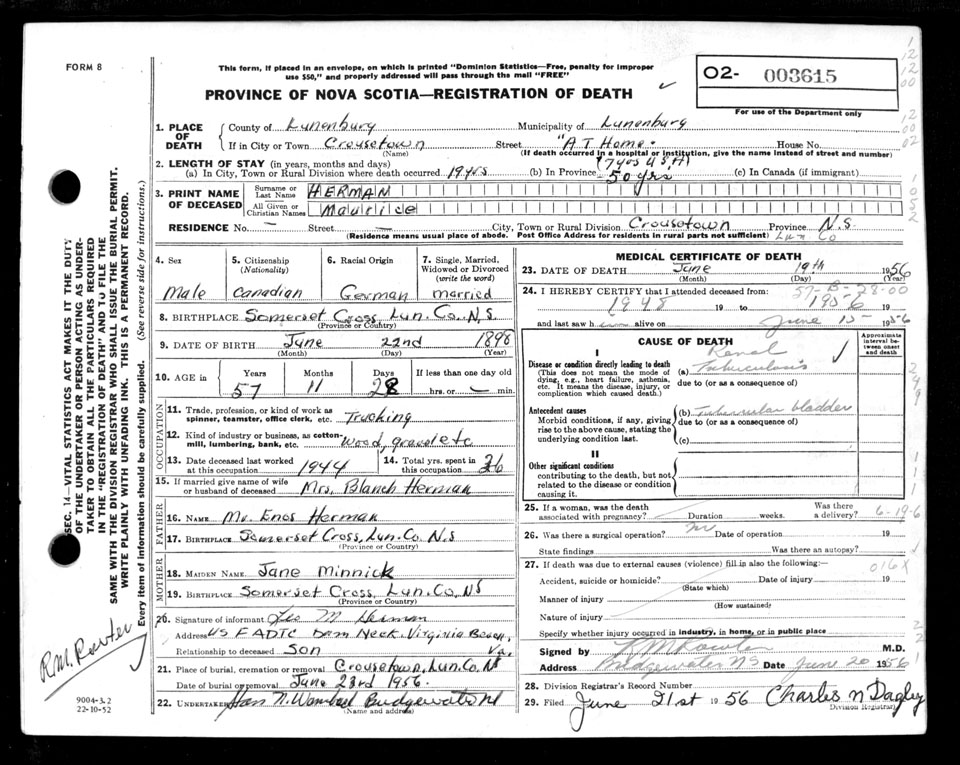 FORM 8
This form, if placed in an envelope, on which is printed "Dominion Statistics—Free, penalty for improper
use $50," and properly addressed will pass through the mail "FREE"
02- 003615
PROVINCE OF NOVA SCOTIA—REGISTRATION OF DEATH
For use of the Department only
1. PLACE OF DEATH
County of Lunenburg Municipality of Lunenburg
If in City or Town Crousetown Street "AT Home" House No.
(Name) (If death occurred in a hospital or institution, give the name instead of street and number)
2. LENGTH OF STAY (in years, months and days) (7 yrs U.S.A)
(a) In City, Town or Rural Division where death occurred 19 yrs (b) In Province 50 yrs (c) In Canada (if immigrant)
3. PRINT NAME OF DECEASED
Surname or Last Name HERMAN
All Given or Christian Names Maurice
RESIDENCE No. — Street — City, Town or Rural Division Crousetown Province N.S.
(Residence means usual place of abode. Post Office Address for residents in rural parts not sufficient) Lun Co
4. Sex
Male
5. Citizenship (Nationality)
Canadian
6. Racial Origin
German
7. Single, Married, Widowed or Divorced (write the word)
married
8. BIRTHPLACE Somerset Cross, Lun. Co. N.S.
(Province or Country)
9. DATE OF BIRTH June 22nd 1898
(Month) (Day) (Year)
10. AGE IN Years Months Days If less than one day old
57 11 28 hrs. or — min.
OCCUPATION
11. Trade, profession, or kind of work as spinner, teamster, office clerk, etc. Trucking
12. Kind of industry or business, as cotton-mill, lumbering, bank, etc. wood, gravel etc
13. Date deceased last worked at this occupation 1944
14. Total yrs. spent in this occupation 26
15. If married give name of wife or husband of deceased Mrs. Blanch Herman
FATHER
16. NAME Mr. Enos Herman
17. BIRTHPLACE Somerset Cross, Lun. Co. N.S
(Province or Country)
MOTHER
18. MAIDEN NAME Jane Minnick
19. BIRTHPLACE Somerset Cross, Lun. Co, NS
(Province or Country)
20. Signature of informant Leo M Herman
Address US F ADTC Dam Neck. Virginia Beach,
Relationship to deceased Son Va.
21. Place of burial, cremation or removal Crousetown, Lun. Co. NS
Date of burial or removal June 23rd 1956.
22. UNDERTAKER Bridgewater NS
(Name and address)
MEDICAL CERTIFICATE OF DEATH
23. DATE OF DEATH June 19th 1956
(Month) (Day) (Year)
24. I HEREBY CERTIFY that I attended deceased from: 37-B-28-00
1948 19 to 1956 19
and last saw him alive on June 15- 1956
CAUSE OF DEATH
Approximate interval between onset and death
I
Disease or condition directly leading to death
(This does not mean the mode of dying, e.g., heart failure, asthenia, etc. It means the disease, injury, or complication which caused death.)
(a) Renal Tuberculosis
due to (or as a consequence of)
Antecedent causes
Morbid conditions, if any, giving rise to the above cause, stating the underlying condition last.
(b) Tubercular bladder
due to (or as a consequence of)
(c)
II
Other significant conditions
contributing to the death, but not related to the disease or condition causing it.
25. If a woman, was the death associated with pregnancy? Duration weeks. Was there a delivery? 6-19-6
26. Was there a surgical operation? no Date of operation 19
State findings Was there an autopsy?
27. If death was due to external causes (violence) fill in also the following:— 016X
Accident, suicide or homicide? Date of injury 19
(State which)
Manner of injury
(How sustained)
Nature of injury
Specify whether injury occurred in industry, in home, or in public place
Signed by R M Rowter M.D.
Address Bridgewater NS Date June 20 1956
28. Division Registrar's Record Number
29. Filed June 21st 1956 Charles N Dagley
Division Registrar
SEC. 14—VITAL STATISTICS ACT MAKES IT THE DUTY
OF THE UNDERTAKER OR PERSON ACTING AS UNDER-
TAKER TO OBTAIN ALL THE PARTICULARS REQUIRED
IN THE "REGISTRATION OF DEATH" AND TO FILE THE
SAME WITH THE DIVISION REGISTRAR WHO SHALL ISSUE THE BURIAL PERMIT.
WRITE PLAINLY WITH UNFADING INK. THIS IS A PERMANENT RECORD.
Every item of information should be carefully supplied. (See reverse side for instructions.)
R.M. Rowter
9004-3.2
22-10-52